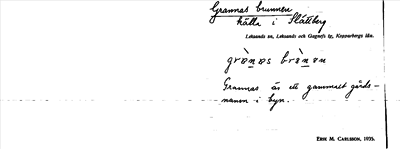 Grannas brunnen
källa i Slättberg
Leksands sn, Leksands och Gagnefs tg, Kopparbergs län.
grànas brànən
Grannas är ett gammalt gårds-
namn i byn.
ERIK M. CARLSSON, 1935.